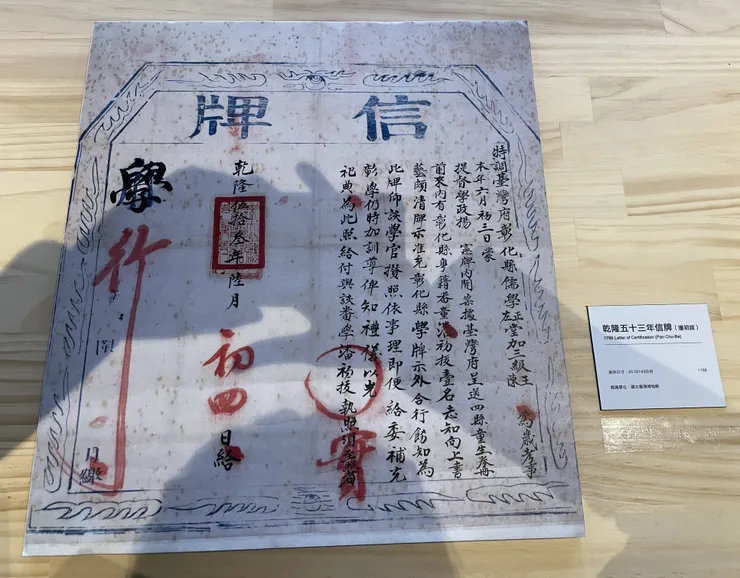 信牌
特調臺灣府彰化縣儒學正堂加三級王
左 陳 為歲考事
本年六月初三日蒙
提督學政楊 憲牌內開案據臺灣府呈送四縣童生彙冊
前來內有彰化縣粵籍番童潘初拔壹名志知向上書
藝頗清牌示准充彰化縣學牌示外合行飭知為
此牌仰該學官攢照依事理即便給委補充
彰學仍時加訓導俾知禮儀以光
祀典為此照給付與該番學潘初拔執照須至牌者
乾隆伍拾叁年陸月初四日給
學
行
限 日繳
乾隆五十三年信牌(潘初拔)
1788 Letter of Certification (Pan-Chu-Ba)
1788